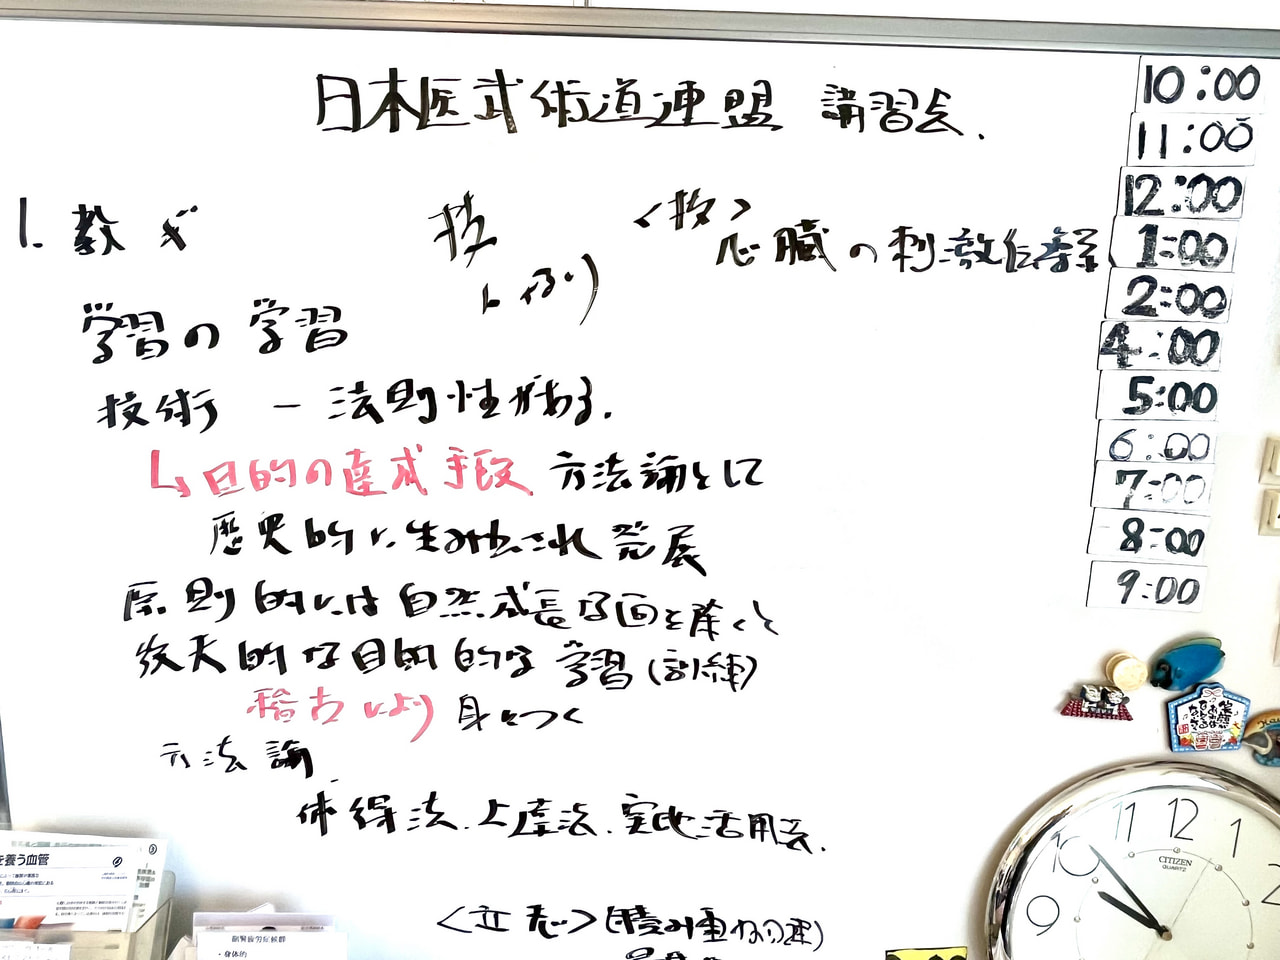 日本医武術道連盟 講習会.
1. 教え
技
〈技〉
心臓の刺激伝導系
学習の学習
技術 ー 法則性がある.
↳目的の達成手段 方法論として
歴史的に生み出され発展
原則的には自然成長る面を除くと
的な目的的な学習(訓練)
稽古により 身につく
方法論
体得法.上達法.実地活用法.
〈立志〉(積み重ね
10:00
11:00
12:00
1:00
2:00
4:00
5:00
6:00
7:00
8:00
9:00
を養う血管
副腎疲労症候群
・身体的
笑顔
CITIZEN
QUARTZ
11 12 1
10 2
9